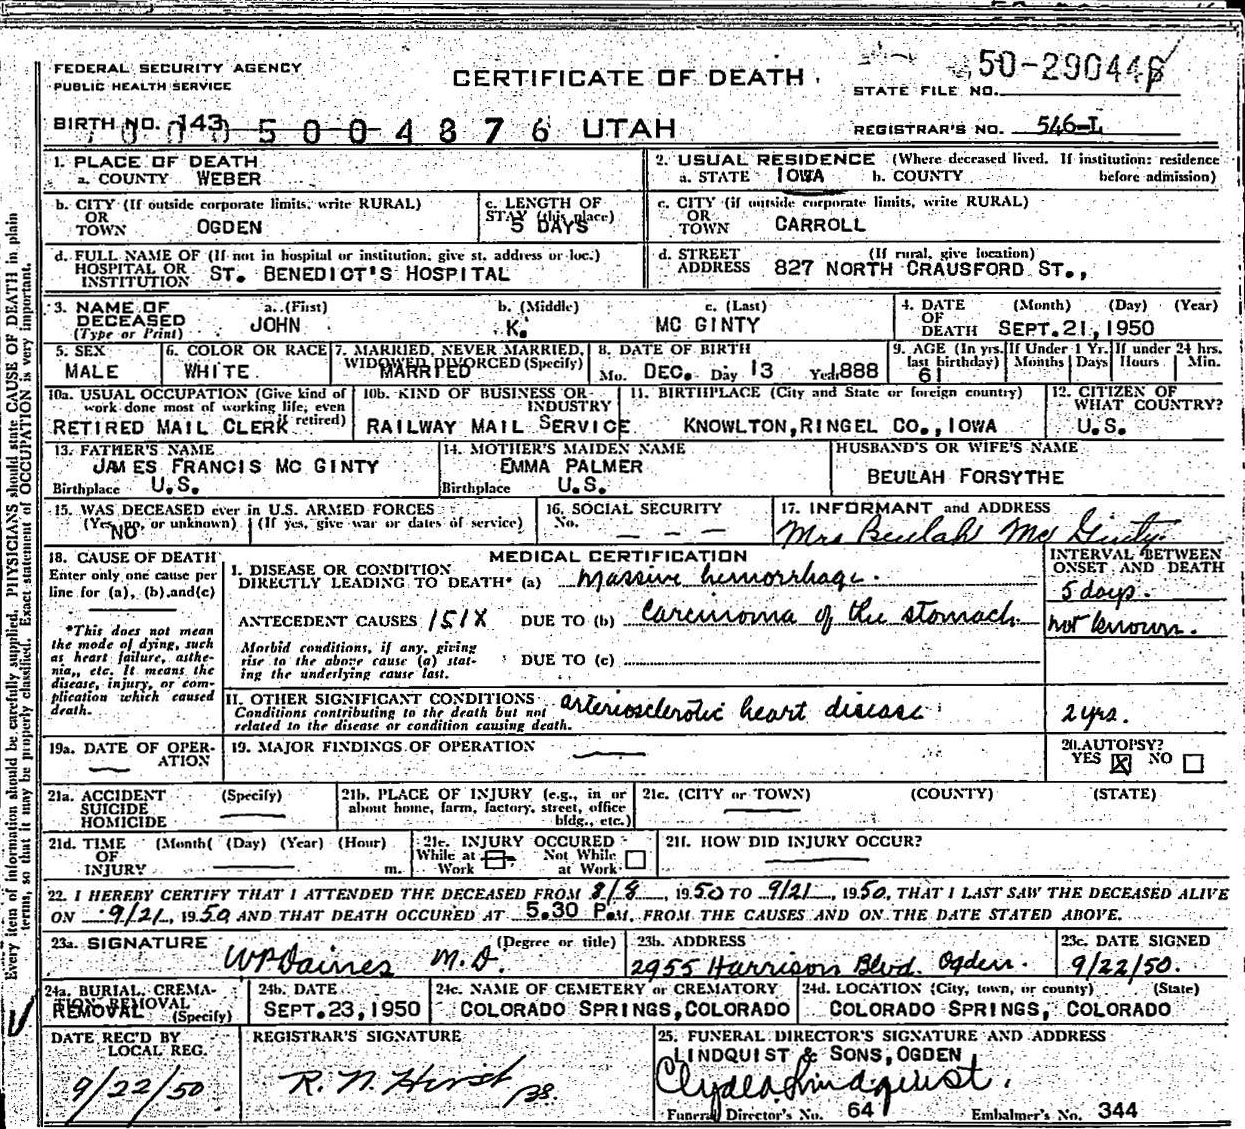 FEDERAL SECURITY AGENCY
PUBLIC HEALTH SERVICE
CERTIFICATE OF DEATH
50-290446
STATE FILE NO.
BIRTH NO. 143
5 0 0 4 8 7 6
UTAH
REGISTRAR'S NO. 546-L
1. PLACE OF DEATH
a. COUNTY WEBER
2. USUAL RESIDENCE (Where deceased lived. If institution: residence before admission)
a. STATE IOWA b. COUNTY
b. CITY (If outside corporate limits, write RURAL)
OR
TOWN OGDEN
c. LENGTH OF
STAY (this place)
5 DAYS
c. CITY (if outside corporate limits, write RURAL)
OR
TOWN CARROLL
d. FULL NAME OF (If not in hospital or institution, give st. address or loc.)
HOSPITAL OR
INSTITUTION ST. BENEDICT'S HOSPITAL
d. STREET (If rural, give location)
ADDRESS 827 NORTH CRAUSFORD ST.,
3. NAME OF
DECEASED
(Type or Print)
a. (First) b. (Middle) c. (Last)
JOHN K. MC GINTY
4. DATE (Month) (Day) (Year)
OF
DEATH SEPT. 21, 1950
5. SEX
MALE
6. COLOR OR RACE
WHITE
7. MARRIED, NEVER MARRIED,
WIDOWED DIVORCED (Specify)
MARRIED
8. DATE OF BIRTH
Mo. DEC. Day 13 Year 1888
9. AGE (In yrs. last birthday)
61
If Under 1 Yr.
Months Days
If under 24 hrs.
Hours Min.
10a. USUAL OCCUPATION (Give kind of work done most of working life, even retired)
RETIRED MAIL CLERK
10b. KIND OF BUSINESS OR INDUSTRY
RAILWAY MAIL SERVICE
11. BIRTHPLACE (City and State or foreign country)
KNOWLTON, RINGEL CO., IOWA
12. CITIZEN OF
WHAT COUNTRY?
U.S.
13. FATHER'S NAME
JAMES FRANCIS MC GINTY
Birthplace U.S.
14. MOTHER'S MAIDEN NAME
EMMA PALMER
Birthplace U.S.
HUSBAND'S OR WIFE'S NAME
BEULAH FORSYTHE
15. WAS DECEASED ever in U.S. ARMED FORCES
(Yes, no, or unknown) (If yes, give war or dates of service)
NO
16. SOCIAL SECURITY
No. - - -
17. INFORMANT and ADDRESS
Mrs Beulah Mc Ginty
18. CAUSE OF DEATH
Enter only one cause per
line for (a), (b), and(c)
*This does not mean
the mode of dying, such
as heart failure, asthe-
nia, etc. It means the
disease, injury, or com-
plication which caused
death.
MEDICAL CERTIFICATION
INTERVAL BETWEEN
ONSET AND DEATH
I. DISEASE OR CONDITION
DIRECTLY LEADING TO DEATH* (a) Massive hemorrhage. 5 days.
ANTECEDENT CAUSES 151X DUE TO (b) Carcinoma of the stomach. not known.
Morbid conditions, if any, giving
rise to the above cause (a) stat-
ing the underlying cause last.
DUE TO (c)
II. OTHER SIGNIFICANT CONDITIONS
Conditions contributing to the death but not
related to the disease or condition causing death.
arteriosclerotic heart disease 2 yrs.
19a. DATE OF OPER-
ATION
19. MAJOR FINDINGS OF OPERATION
20. AUTOPSY?
YES X NO
21a. ACCIDENT (Specify)
SUICIDE
HOMICIDE
21b. PLACE OF INJURY (e.g., in or
about home, farm, factory, street, office
bldg., etc.)
21c. (CITY or TOWN) (COUNTY) (STATE)
21d. TIME (Month( (Day) (Year) (Hour)
OF
INJURY m.
21e. INJURY OCCURED
While at Work Not While at Work
21f. HOW DID INJURY OCCUR?
22. I HEREBY CERTIFY THAT I ATTENDED THE DECEASED FROM 8/8, 1950 TO 9/21, 1950, THAT I LAST SAW THE DECEASED ALIVE
ON 9/21, 1950 AND THAT DEATH OCCURED AT 5.30 P.M, FROM THE CAUSES AND ON THE DATE STATED ABOVE.
23a. SIGNATURE (Degree or title)
WP Daines M.D.
23b. ADDRESS
2955 Harrison Blvd. Ogden.
23c. DATE SIGNED
9/22/50.
24a. BURIAL, CREMA-
TION REMOVAL
REMOVAL (Specify)
24b. DATE
SEPT. 23, 1950
24c. NAME OF CEMETERY or CREMATORY
COLORADO SPRINGS, COLORADO
24d. LOCATION (City, town, or county) (State)
COLORADO SPRINGS, COLORADO
DATE REC'D BY
LOCAL REG.
9/22/50
REGISTRAR'S SIGNATURE
R. N. Hirst
25. FUNERAL DIRECTOR'S SIGNATURE AND ADDRESS
LINDQUIST & SONS, OGDEN
Clyde Lindquist.
Funeral Director's No. 641 Embalmer's No. 344
Every item of information should be carefully supplied. PHYSICIANS should state CAUSE OF DEATH in plain
terms, so that it may be properly classified. Exact statement of OCCUPATION is very important.